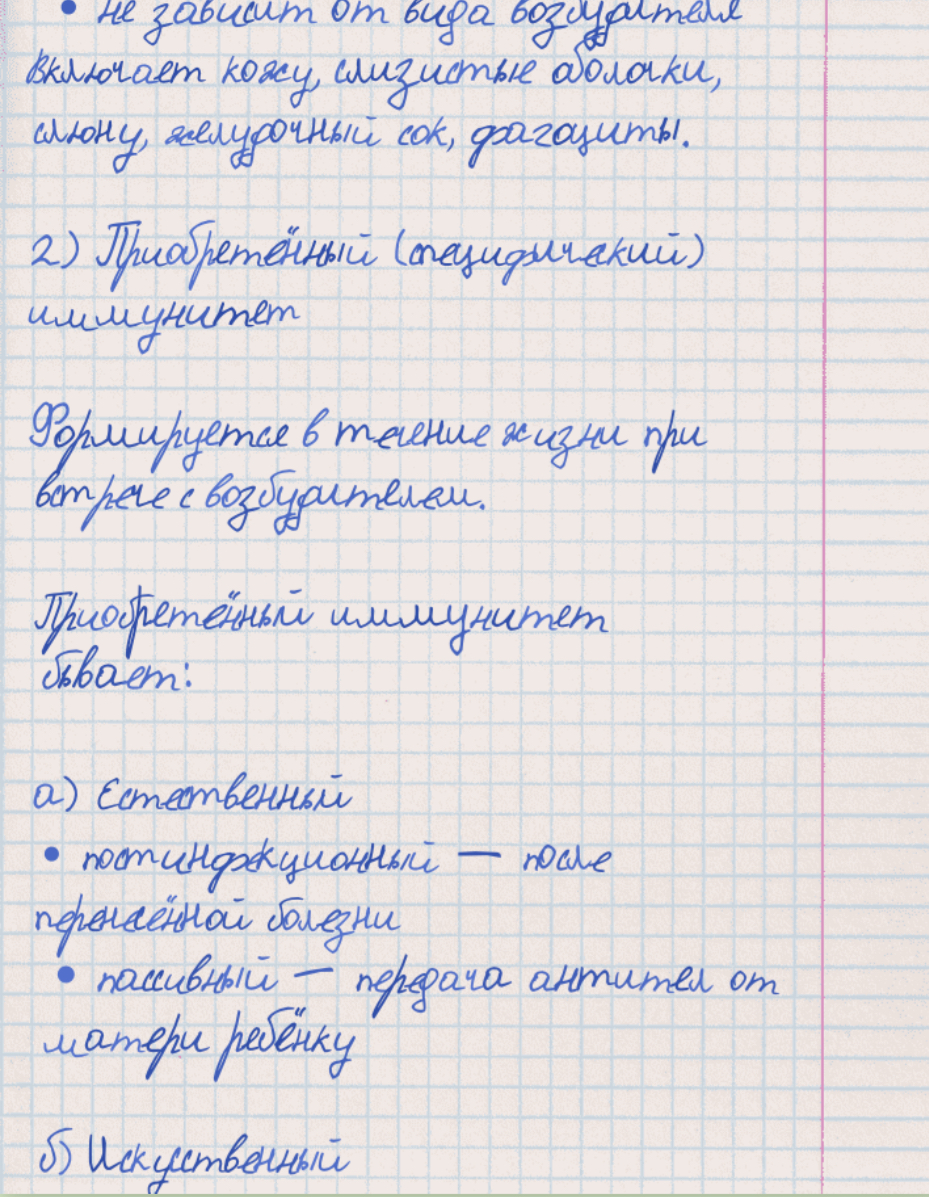 • не зависит от вида возбудителя
Включает кожу, слизистые оболочки,
слюну, желудочный сок, фагоциты.
2) Приобретённый (специфический)
иммунитет
Формируется в течение жизни при
встрече с возбудителем.
Приобретённый иммунитет
бывает:
а) Естественный
• постинфекционный — после
перенесённой болезни
• пассивный — передача антител от
матери ребёнку
б) Искусственный